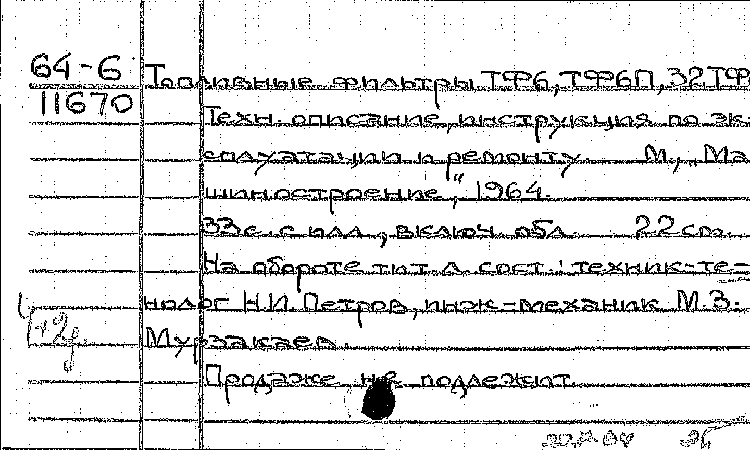 64-6 Топливные фильтры ТФ6, ТФ6П, 32ТФ
11670 Техн. описание, инструкция по эк-
сплуатации и ремонту М., „Ма-
шиностроение", 1964.
33 с. с илл., включ. обл. 22 см.
На обороте тит. л. сост.: техник-те=
нолог Н.И. Петров, инж.-механик М.З.
Мурзакаев.
Продаже не подлежит